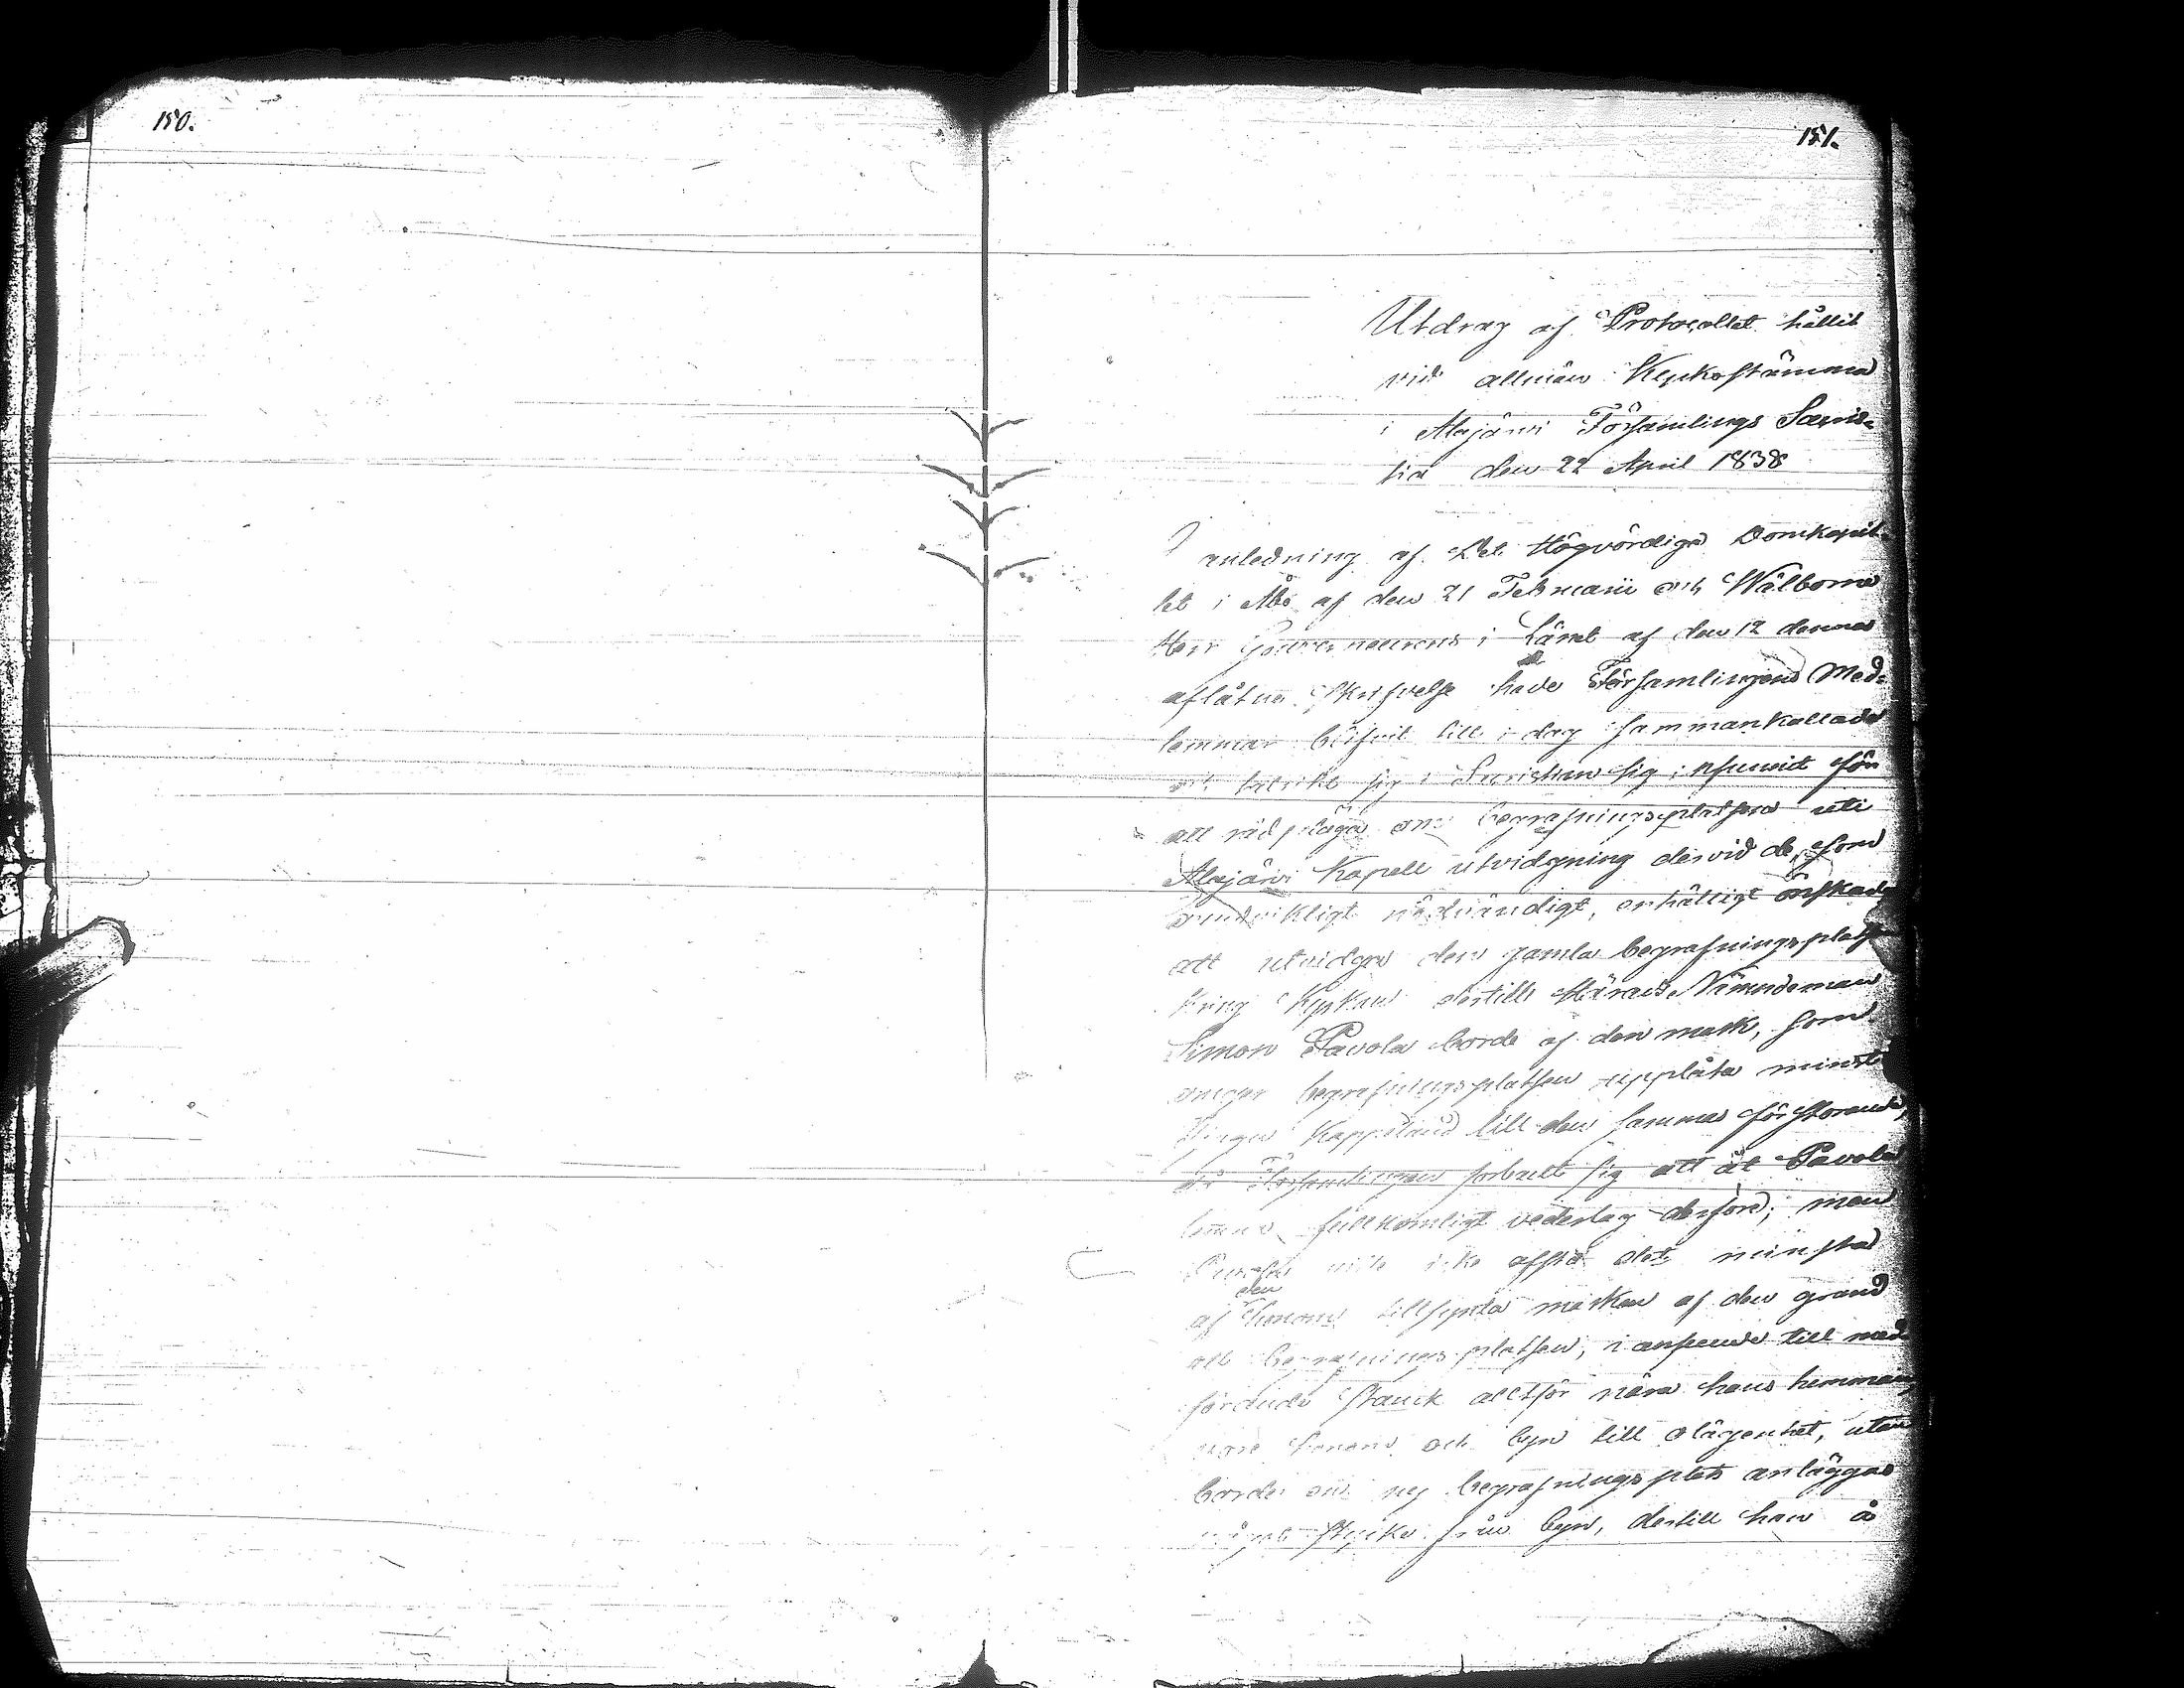 150.
151.
Utdrag af Protocollet hållit
vid allmän Kyrkostämma
i Alajärvi Församlings Sacris-
tia den 22 April 1838
I anledning af Det Högvördiga Domkapit-
let i Åbo af den 21 Februarii och Wälborne
Herr Gouverneurens i Länet af den 12 dennes
aflåtne Skrifvelse hade Församlingens Med-
lemmar blifvit till i dag sammankallade
sig i Sacristian sig infunnit för
att rådplåga om begrafningsplatsens uti
Alajärvi Kapell utvidgning dervid de, som
oundvikligt nödvändigt, enhälligt önskade
att utvidga den gamla begrafningsplatsen
kring Kyrkan dertill Härads Nämndeman
Simon Pavola borde af den mark, som
omger begrafningsplatsen upplåta minst
Kappeland till den sammas förstorande,
då Församlingen förbudt sig att åt Pavola
lemna fullkomligt vederlag derföre; men
Pavola ville icke afstå det minsta
af den honom tillhörda marken af den grund
att begrafningsplatsen, i anseende till med-
förande stank alltför nära hans hemman
vore honom och byn till olägenhet, utan
borde en ny begrafningsplats anläggas
något stycke från byn, dertill han å